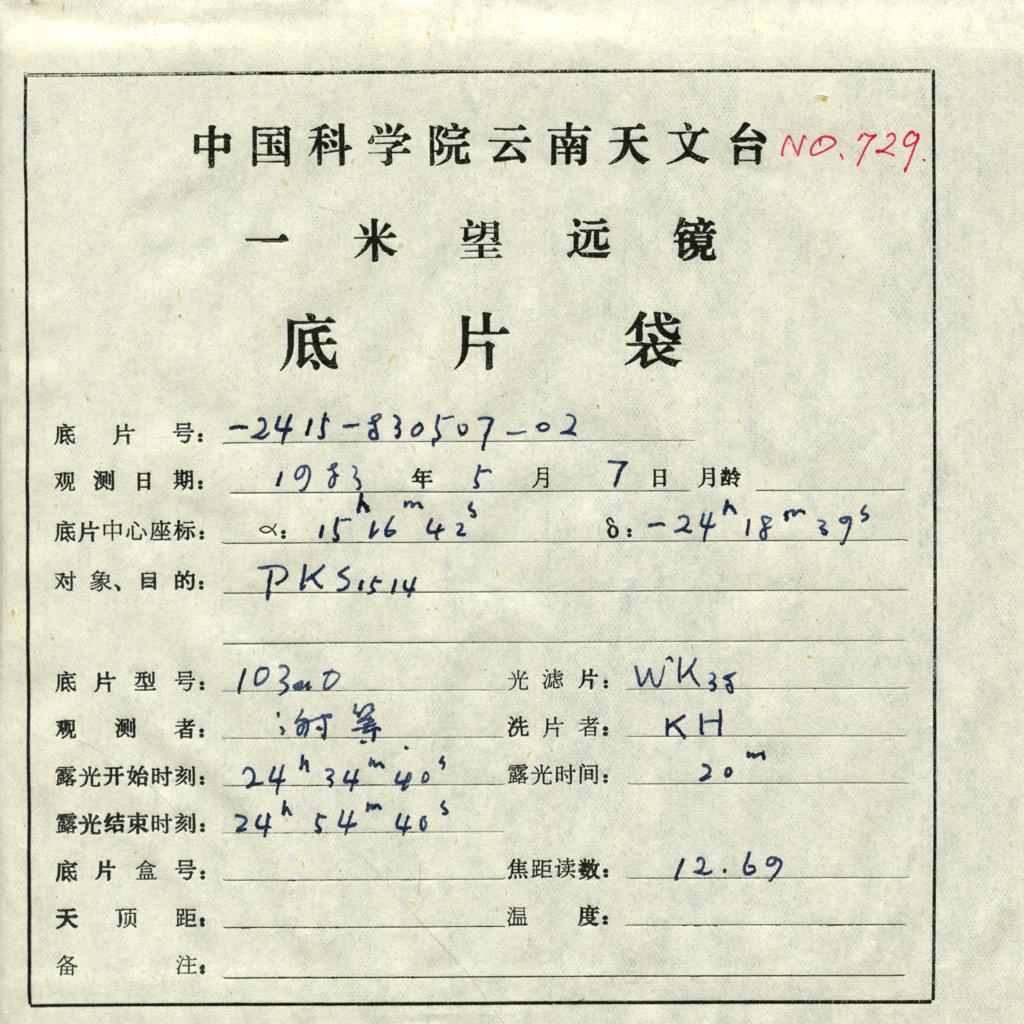 中国科学院云南天文台 NO.729.
一米望远镜
底片袋
底片号： -2415-830507-02
观测日期： 1983 年 5 月 7 日 月龄
底片中心座标： α： 15h 16m 42s δ： -24h 18m 39s
对象、目的： PKS1514
底片型号： 103aO 光滤片： WK38
观测者： 洗片者： KH
露光开始时刻： 24h 34m 40s 露光时间： 20m
露光结束时刻： 24h 54m 40s
底片盒号： 焦距读数： 12.69
天顶距： 温度：
备注：